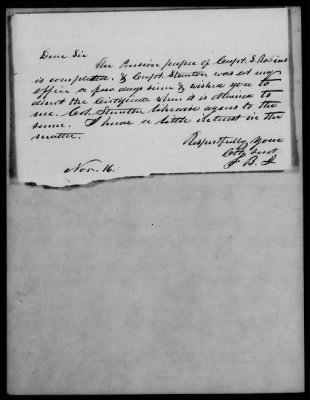 Dear Sir
The Pension paper of Capt. S. Robins
is completed. & Capt. Stanton was at my
office a few days since & wished you to
direct the Certificate when it is obtained to
me. Col. Stanton likewise agrees to the
same. I have a little interest in the
matter.
Respectfully Yours
Obt. Servt
J B
Nov. 16.